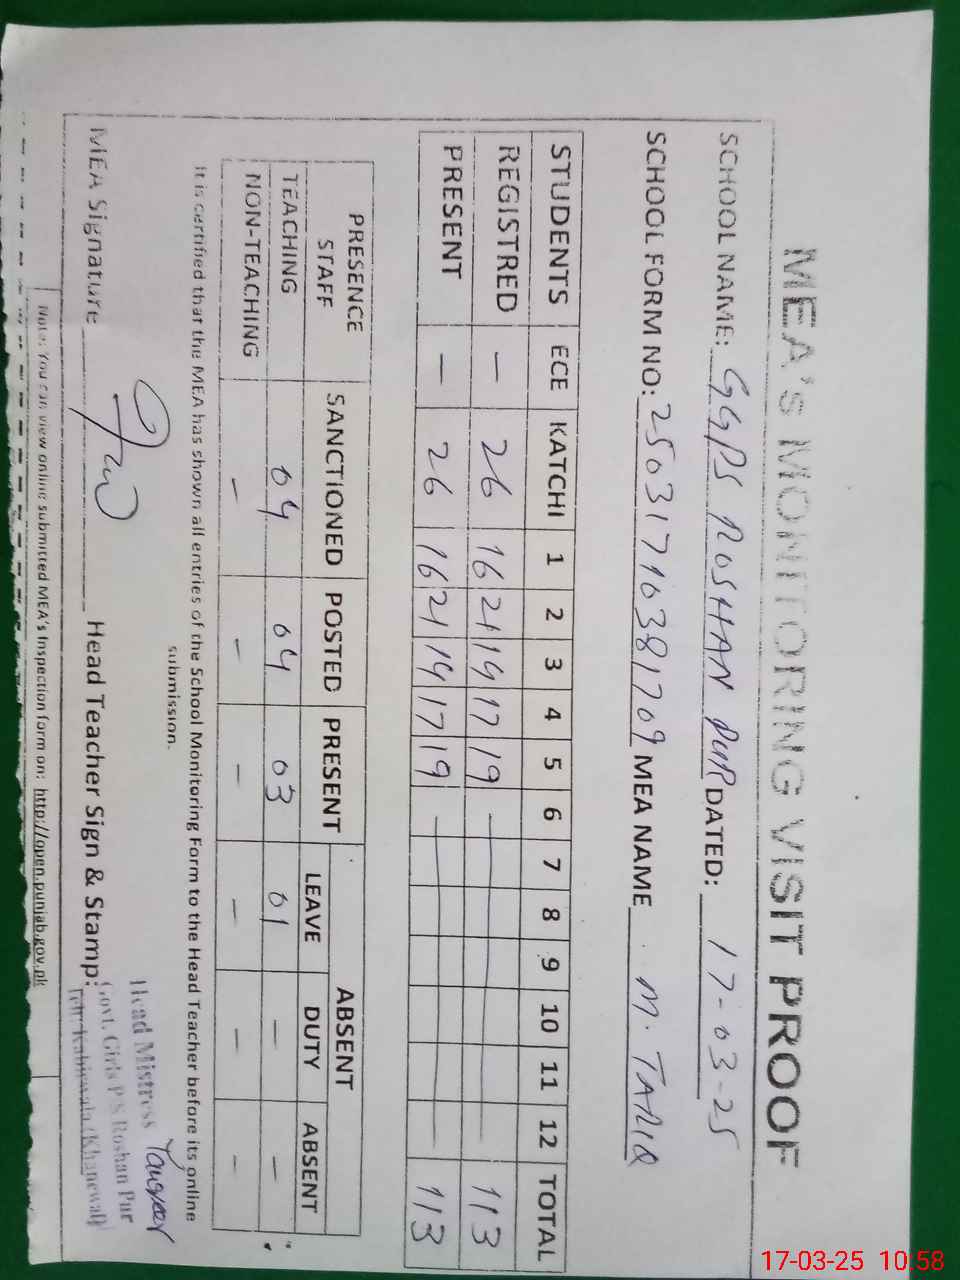 MEA'S MONITORING VISIT PROOF
SCHOOL NAME: GGPS ROSHAN PUR DATED: 17-03-25
SCHOOL FORM NO: 25031710381709 MEA NAME M. TARIQ
STUDENTS ECE KATCHI 1 2 3 4 5 6 7 8 9 10 11 12 TOTAL
REGISTRED — 26 16 21 14 17 19 — 113
PRESENT — 26 16 21 14 17 19 — 113
PRESENCE STAFF SANCTIONED POSTED PRESENT ABSENT
LEAVE DUTY ABSENT
TEACHING 04 04 03 01 — —
NON-TEACHING — — — — — —
It is certified that the MEA has shown all entries of the School Monitoring Form to the Head Teacher before its online
submission.
MEA Signature Head Teacher Sign & Stamp:
Head Mistress
Govt. Girls P/S Roshan Pur
Teh: Kabirwala (Khanewal)
Note: You can view online submitted MEA's Inspection form on: http://open.punjab.gov.pk
17-03-25 10:58